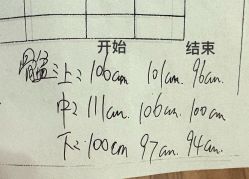 开始 结束
髋:上:106cm 101cm. 96cm.
中:111cm. 106cm. 100cm
下:100cm 97cm. 94cm.